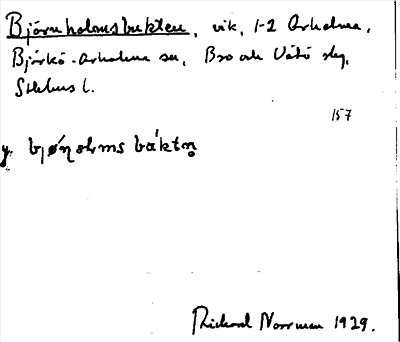 Björnholmsbukten, vik, 1-2 Arholma,
Björkö-Arholma sn, Bro och Vätö slg,
Sthlms l.
157
y. bjǿn olms báktn̥
Rickard Norrman 1929.